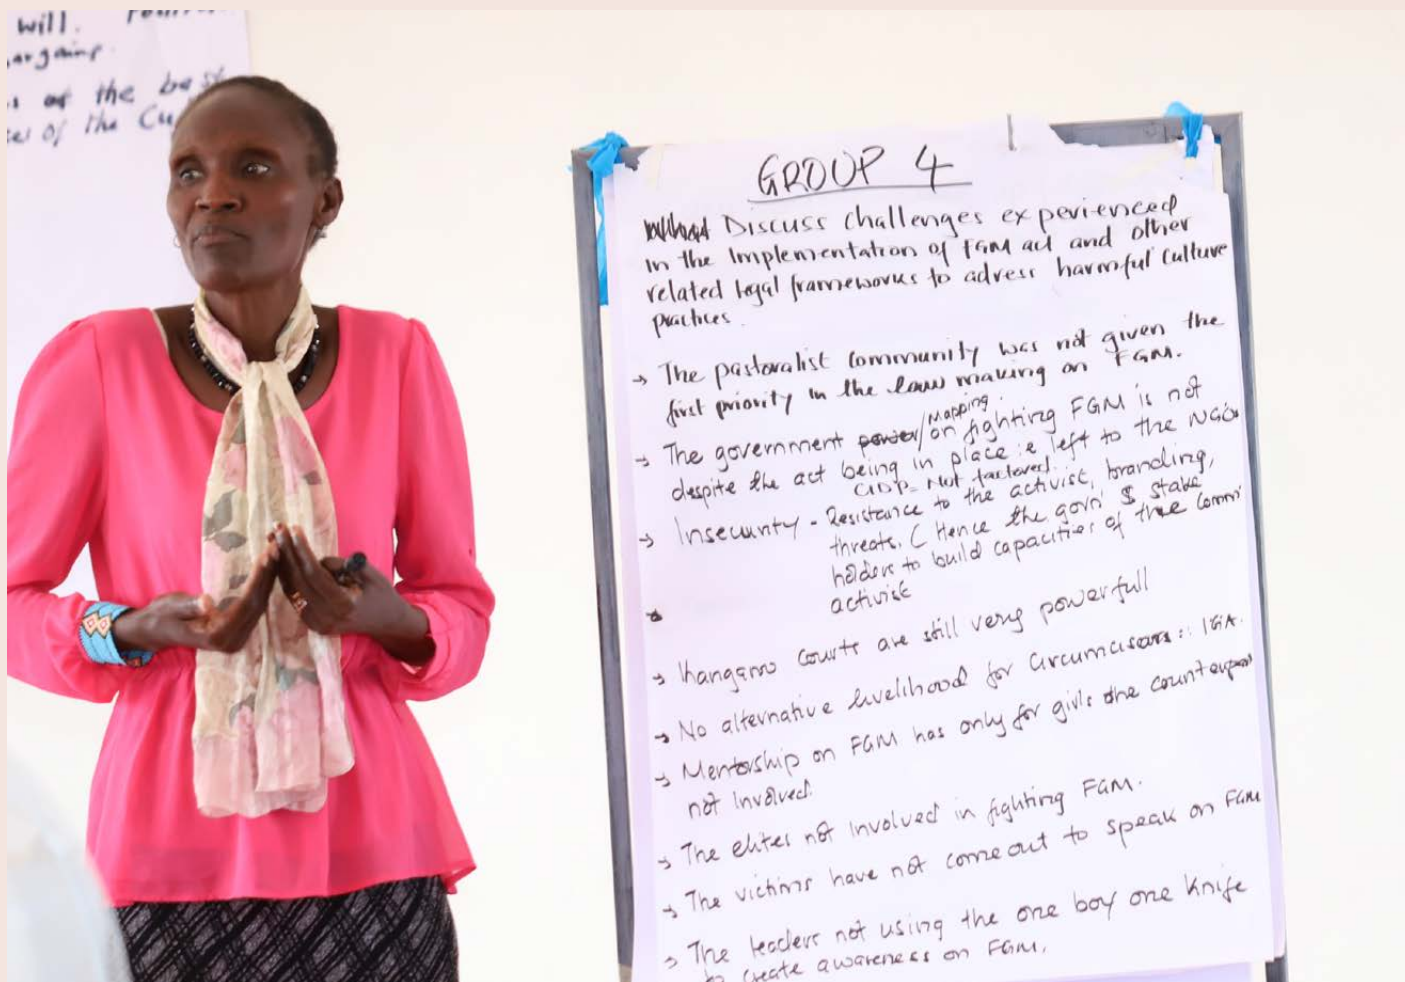 will.
argaing.
the best
of the Cu
GROUP 4
Discuss challenges experienced
in the Implementation of FGM act and other
related legal frameworks to adress harmful culture
practices.
→ The pastoralist Community was not given the
first priority in the law making on FGM.
→ The government power/on fighting FGM is not
Mapping.
despite the act being in place i.e left to the NGOs
GDP = Not factored.
→ Insecurity - Resistance to the activist, branding,
threats. ( Hence the govn' & stake
holders to build capacities of the Comm
activist
→ Kangaroo Courts are still very powerfull
→ No alternative livelihood for Circumcisers :: IGA.
→ Mentorship on FGM has only for girls the counterparts
not Involved
→ The elites not involved in fighting FGM.
→ The victims have not come out to speak on FGM
→ The leaders not using the one boy one Knife
to create awareness on FGM.